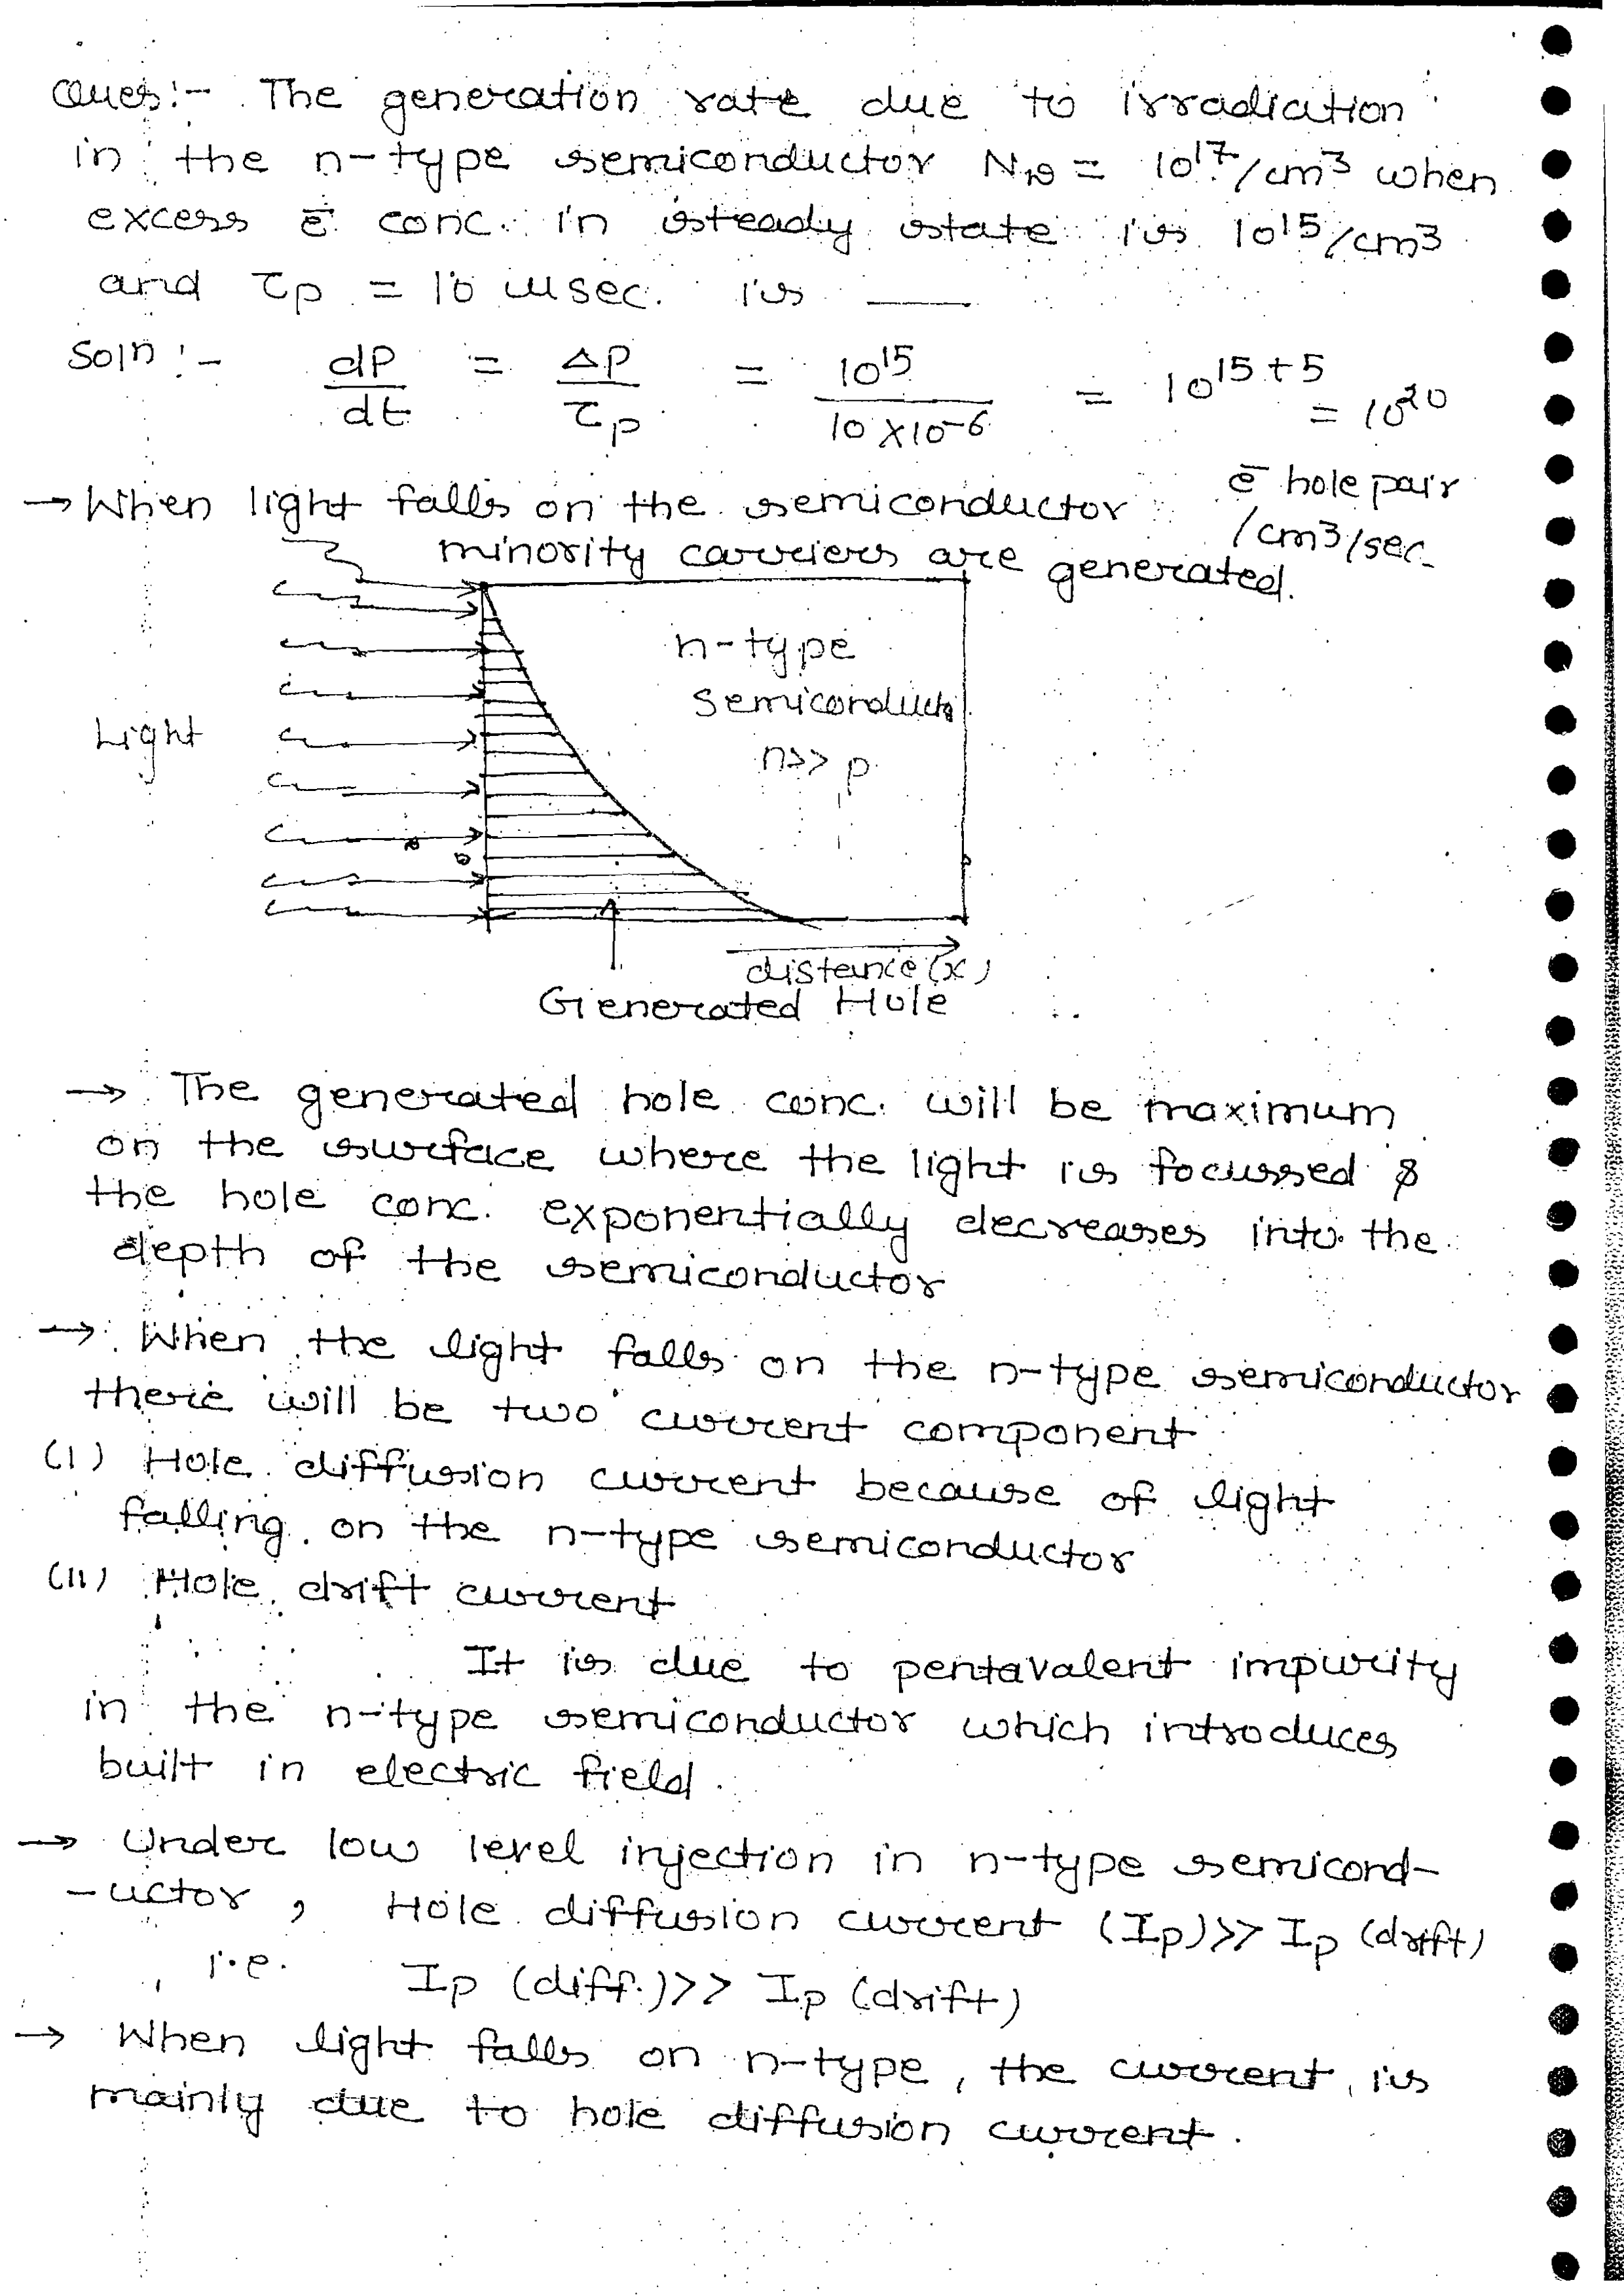 Ques:- The generation rate due to irradiation
in the n-type semiconductor N_D = 10^17/cm^3 when
excess e̅ conc. in steady state is 10^15/cm^3
and τ_p = 10 μsec. is ___
Soln:- dP/dt = ΔP/τ_p = 10^15/(10×10^-6) = 10^(15+5) = 10^20
e̅ hole pair
/cm3/sec.
→ When light falls on the semiconductor
minority carriers are generated.
n-type
semiconducto
n>> p
Light
distance (x)
Generated Hole
→ The generated hole conc. will be maximum
on the surface where the light is focussed &
the hole conc. exponentially decreases into the
depth of the semiconductor
→ When the light falls on the n-type semiconductor
there will be two current component
(I) Hole diffusion current because of light
falling on the n-type semiconductor
(II) Hole drift current
It is due to pentavalent impurity
in the n-type semiconductor which introduces
built in electric field.
→ Under low level injection in n-type semicond-
-uctor, Hole diffusion current (Ip)>> Ip (drift)
i.e. Ip (diff.)>> Ip (drift)
→ When light falls on n-type, the current, is
mainly due to hole diffusion current.